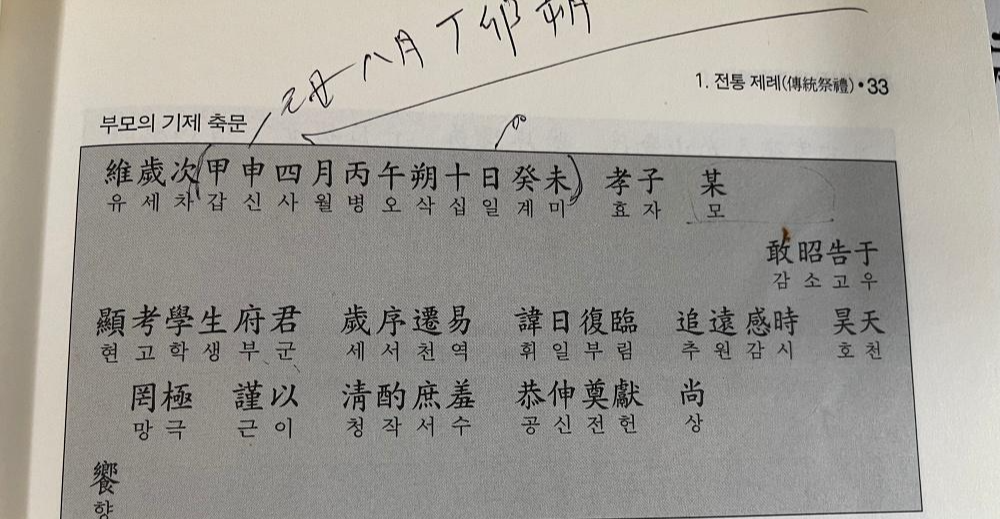 八月丁卯朔
1. 전통 제례(傳統祭禮) • 33
부모의 기제 축문
維歲次 甲申四月丙午朔十日癸未 孝子 某
유세차 갑신사월병오삭십일계미 효자 모
敢昭告于
감소고우
顯考學生府君 歲序遷易 諱日復臨 追遠感時 昊天
현고학생부군 세서천역 휘일부림 추원감시 호천
罔極 謹以 清酌庶羞 恭伸奠獻 尚
망극 근이 청작서수 공신전헌 상
饗
향